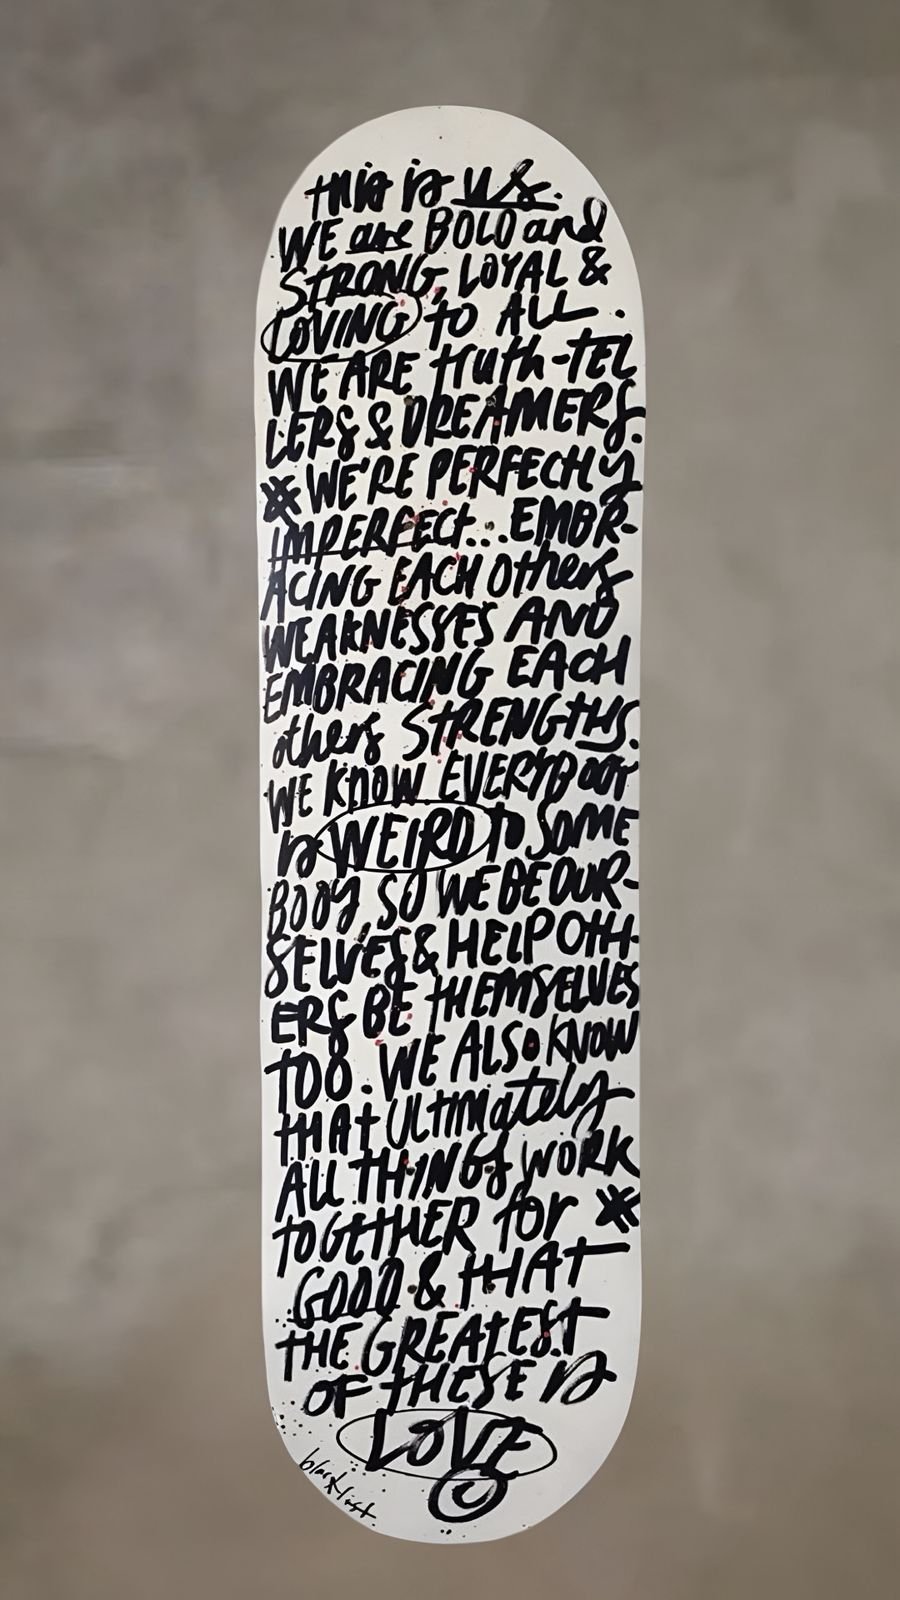 this is us.
WE are BOLD and
STRONG, LOYAL &
LOVING TO ALL.
WE ARE truth-TEL
LERS & DREAMERS.
WE'RE PERFECtly
IMPERFECT...EMBR-
ACING EACH Others
WEAKNESSES AND
EMBRACING EACH
others STRENGTHS.
WE KNOW EVERYBODY
is WEIRD TO SOME
BODY, SO WE BE OUR-
SELVES & HELP OTH-
ERS BE tHEMSELVES
TOO. WE ALSO KNOW
tHAt ULTIMately
ALL THINGS WORK
TOGETHER for
GOOD & tHAT
THE GREATEST
OF tHESE is
LOVE
©
blacklist.